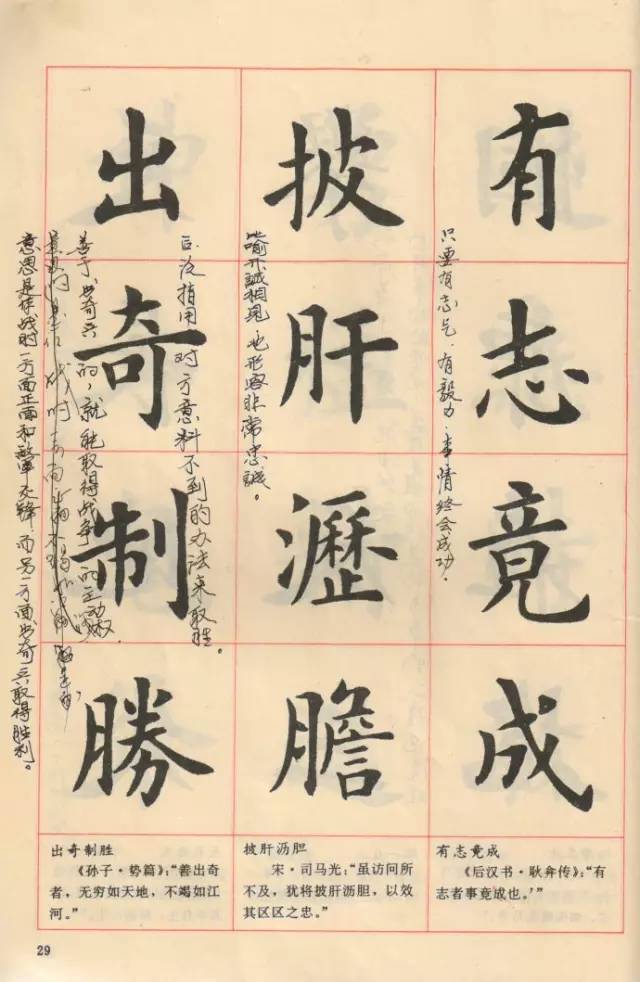 有志竟成
只要有志气，有毅力，事情终会成功。
披肝瀝膽
喻开誠相見，也形容非常忠誠。
出奇制勝
泛指用对方意料不到的办法来取胜。
善于出奇兵的，就能取得战争的主动权，
意思是作战时一方面正面和敵軍交鋒，而另一方面出奇兵取得胜利。
出奇制胜
《孙子·势篇》：“善出奇
者，无穷如天地，不竭如江
河。”
披肝沥胆
宋·司马光：“虽访问所
不及，犹将披肝沥胆，以效
其区区之忠。”
有志竟成
《后汉书·耿弇传》：“有
志者事竟成也。’”
29